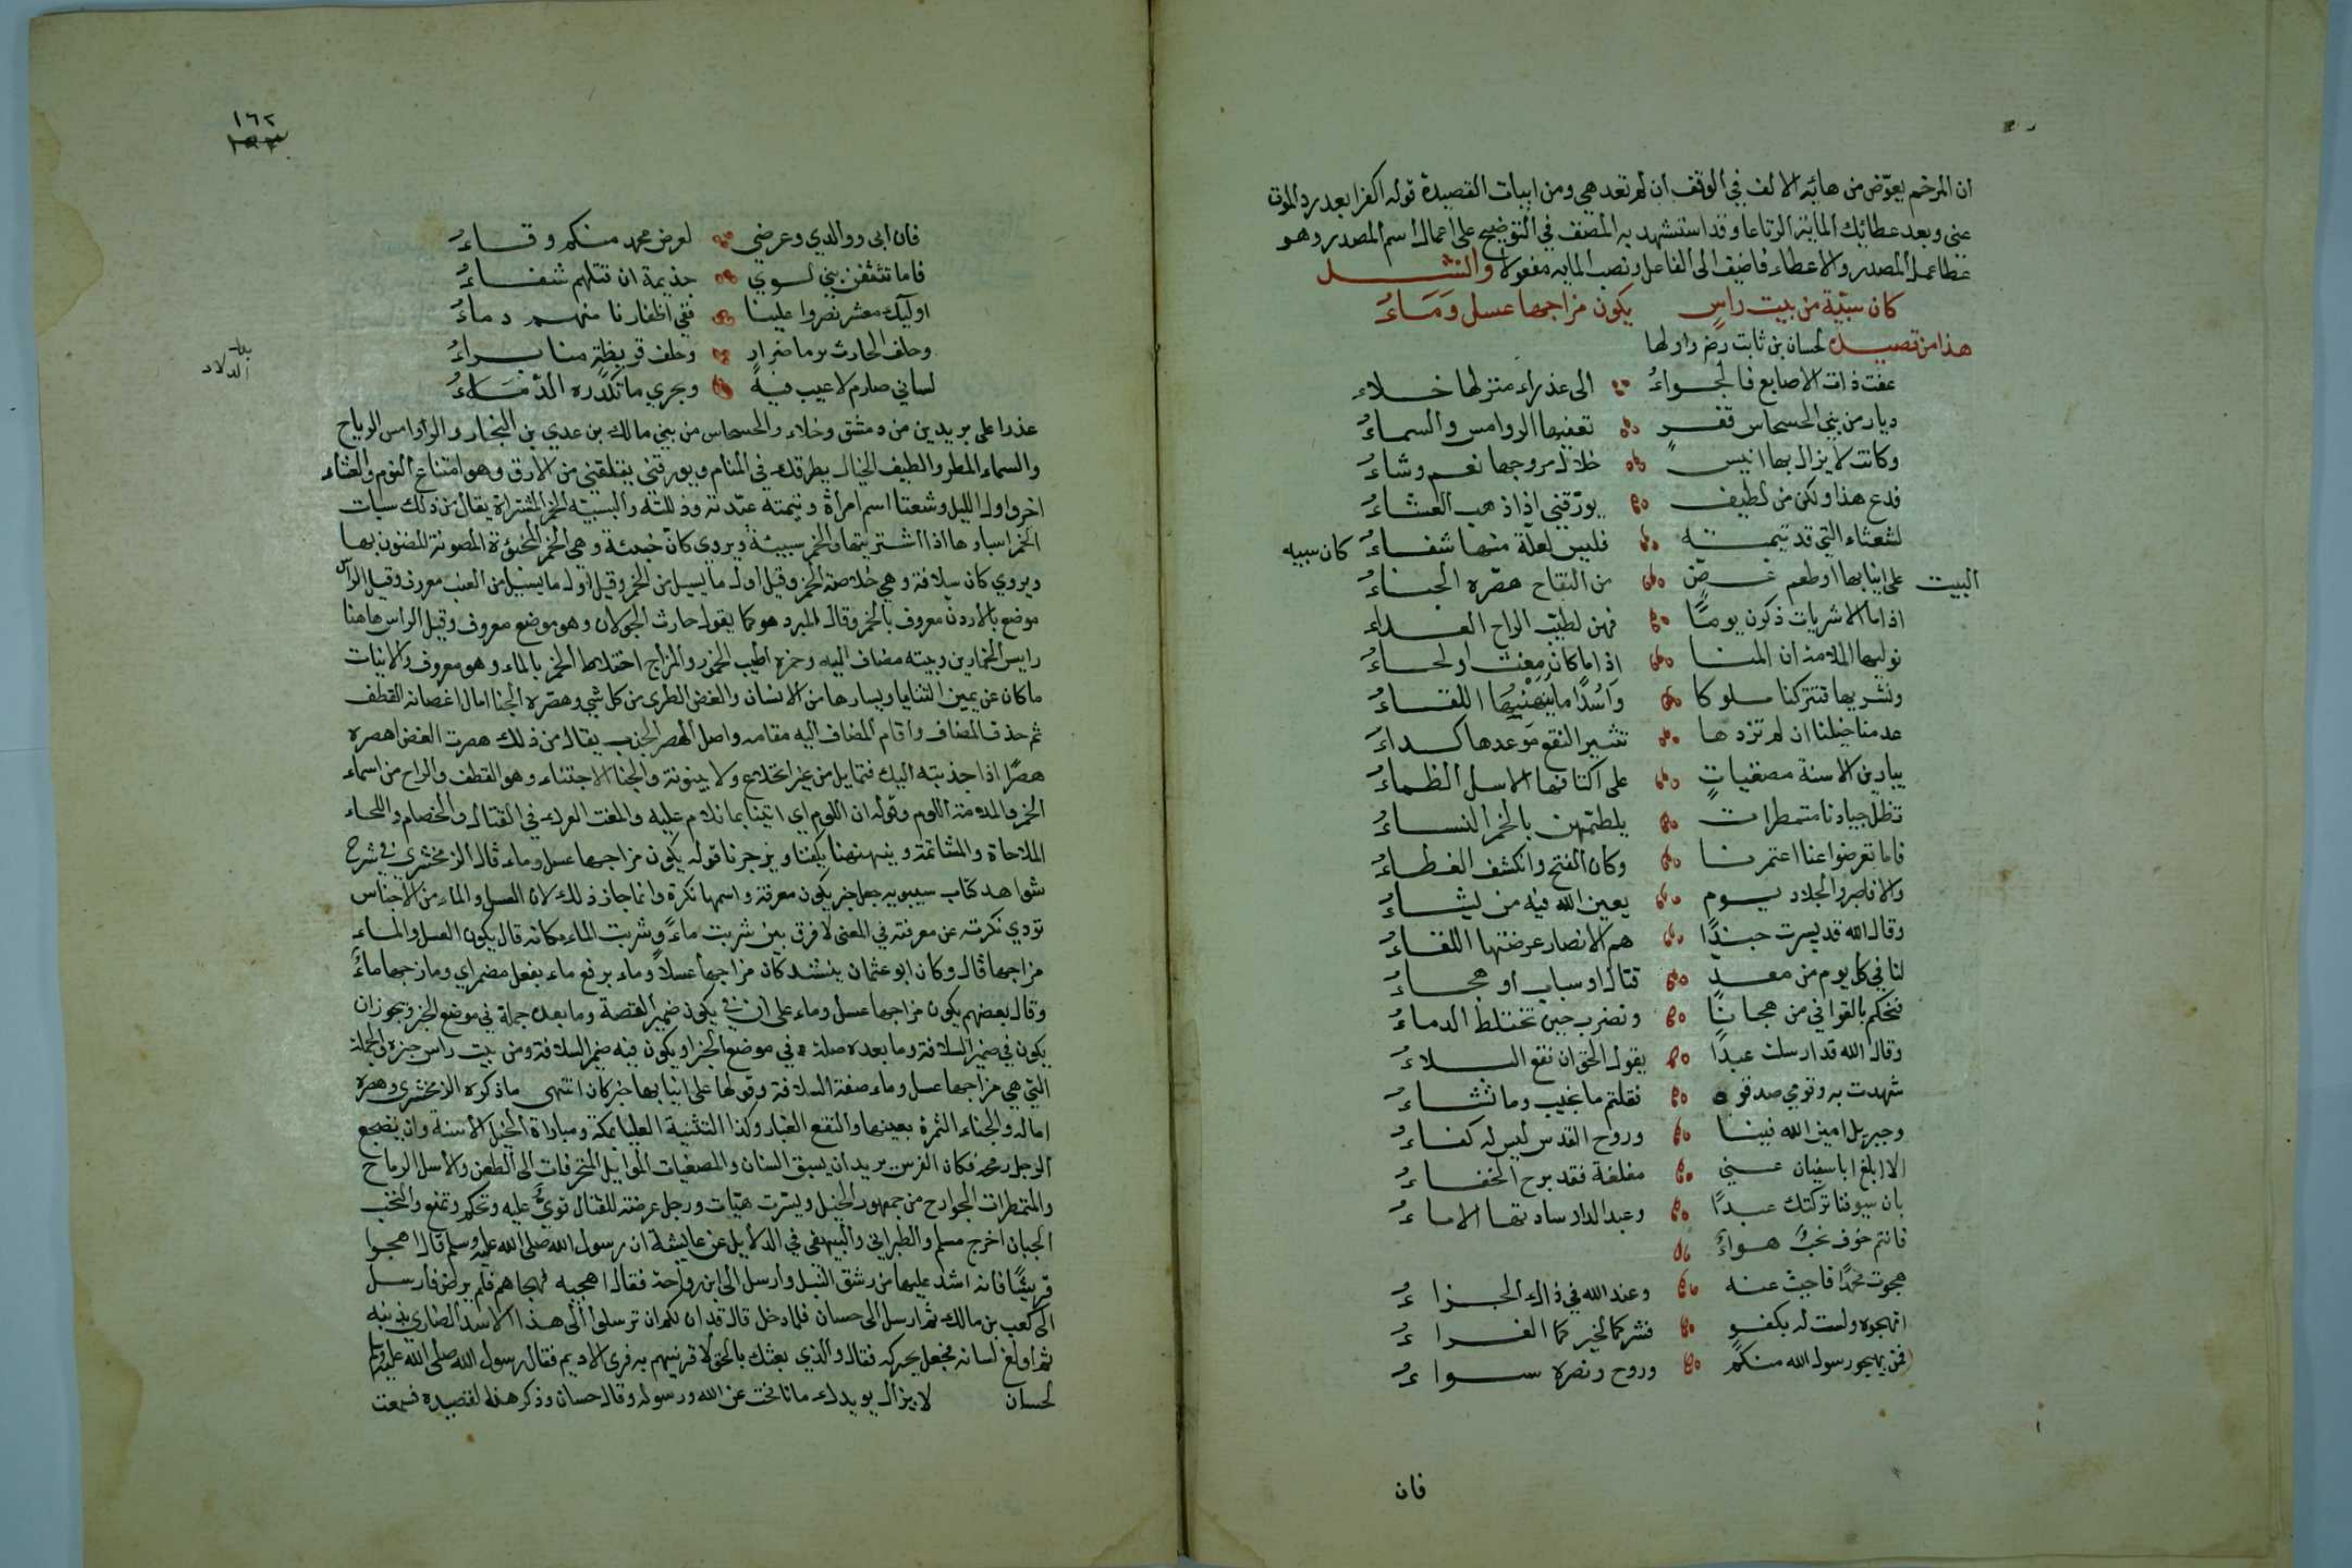 ان المرخم يعوّض من هائه الالف في الوقف ان لم تعد هي ومن ابيات القصيدة قوله اكفرا بعد رد الموت
عنى وبعد عطائك الماية الرتاعا وقد استشهد به المصنف في التوضيح على اعمال اسم المصدر وهو
عطا عمل المصدر والاعطاء فاضيف الى الفاعل ونصب المايه مفعولا وانشد
كان سبيّة من بيت راسٍ يكون مزاجها عسل وَمَاءُ
هذا من قصيدة لحسان بن ثابت رض واولها
عفت ذات الاصابع فالجواءُ الى عذراء منزلها خلاء
ديار من بني الحسحاس قفرٍ تعفيها الروامس والسماءُ
وكانت لا يزال بها انيسٌ خلال مروجها نعم وشاءُ
فدع هذا ولكن من لطيف يورّقني اذا ذهب العشاءُ
لشعثاء التي قد تيمته فليس لعلّة منها شفاءُ كان سبيه
البيت على انيابها او طعم غضٍّ من التفاح هصّره الجناءُ
اذا ما الاشربات ذكرن يومًا فهن لطيّب الراح الفداء
نوليها الملامة ان المنا اذا ما كان مغث او لحاءُ
ونشربها فتتركنا ملوكا وَاُسْدًا ما يُنَهْنِهُهَا اللقاءُ
عدمنا خيلنا ان لم تروها تثير النقع موعدها كداءَ
يبارين الاسنة مصغياتٍ على اكتافها الاسل الظماءُ
تظل جيادنا متمطرات يلطمهن بالخمر النساءُ
فاما تعرضوا عنا اعتمرنا وكان الفتح وانكشف الغطاءُ
والا فاصبروا لجلاد يوم يعين الله فيه من يشاءُ
وقال الله قد يسرت جندًا هم الانصار عرضتها اللقاءُ
لنا في كل يوم من معدٍ قتال او سباب او هجاءُ
فنحكم بالقوافي من هجانًا ونضرب حين تختلط الدماءُ
وقال الله قد ارسلت عبدًا يقول الحق ان نفع البلاءُ
شهدت به وقومي صدقوه فقلتم ما نجيب وما نشاءُ
وجبريل امين الله فينا وروح القدس ليس له كفاءُ
الا ابلغ ابا سفيان عني مغلغة فقد برح الخفاءُ
بان سيوفنا تركتك عبدًا وعبد الدار سادتها الاماءُ
فانتم جوف نخبٌ هواءٌ
هجوت محمدًا فاجبت عنه وعند الله في ذاك الجزاءُ
اتهجوه ولست له بكفو فشركما لخيركما الفداءُ
فمن يهجو رسول الله منكمُ وروح ونصره سواءُ
فان
١٦٢
فان ابي ووالدي وعرضي لعرض محمد منكم وقاءُ
فاما تثقفن بني لوي جذيمة ان قتلهم شفاءُ
اوليك معشر نصروا علينا ففي اظفارنا منهم دماءُ
وحلف الحارث بن ضرارٍ وحلف قريظةٍ منا براءُ
لساني صارم لا عيب فيه وبحري ما تكدره الدلاءُ
عذرا على بريدين من دمشق وخلاء والحسحاس من بني مالك بن عدي بن النجار والروامس الرياح
والسماء المطر والطيف الخيال يطرقك في المنام ويورقني يقلقني من الارق وهو امتناع النوم والعشاء
اخر واول الليل وشعثا اسم امراة وتيمته عبّدته وذللته والسبيّة الخمر المشتراة يقال من ذلك سبات
الخمر اسباوها اذا اشتريتها والخمر سبيئة ويروى كان خبيئة وهي الخمر المخبوّة المصونة المضنون بها
ويروى كان سلافة وهي خلاصة الخمر وقيل اول ما يسيل من الخمر وقيل اول ما يسيل من العنب معروف وقيل الراس
موضع بالاردن معروف بالخمر وقال المبرد هو كما يقول حارث الجولان وهو موضع معروف وقيل الراس هاهنا
رايس الخمارين وبيته مضاف اليه وخمره اطيب الخمور والمزاج اختلاط الخمر بالماء وهو معروف والانياب
ما كان عن يمين الثنايا ويسارها من الانسان والغض الطري من كل شي وهصّره الجنا امال اغصانه القطف
ثم حذف المضاف واقام المضاف اليه مقامه واصل الهصر الجذب يقال من ذلك هصرت الغصن اهصره
هصرًا اذا جذبته اليك فتمايل من غير انخلاع ولا بينونة والجنا الاجتناء وهو القطف والراح من اسماء
الخمر والملامة اللوم وقوله ان اللوم اي اتينا بما نلام عليه والمغث العراك في القتال والخصام واللحاء
الملاحاة والمشاتمة وينهنهنا يكفنا ويزجرنا قوله يكون مزاجها عسل وماء قال الزمخشري في شرح
شواهد كتاب سيبويه جعل خبر يكون معرفة واسمها نكرة وانما جاز ذلك لان العسل والماء من الاجناس
تودي نكرته عن معرفته في المعنى لا فرق بين شربت ماءً وشربت الماء فكانه قال يكون العسل والماء
مزاجها قال وكان ابو عثمان ينشد كان مزاجها عسلاً وماء برفع ماء بفعل مضمر اي ومازجها ماءٌ
وقال بعضهم يكون مزاجها عسل وماء على ان في يكون ضمير القصة وما بعده جملة في موضع الخبر ويجوز ان
يكون في ضمير السلافة وما بعده صلة في موضع الخبر او يكون فيه ضمير السلافة ومن بيت راس خبره والجملة
التي هي مزاجها عسل وماء صفة السلافة وقولها على انيابها خبر كان انتهى ما ذكره الزمخشري وهصره
اماله والجناء الثمرة بعينها والنقع الغبار وكذا الثنية العليا بمكة ومباراة الخيل الاسنة وان يضجع
الرجل رمحه فكان الفرس يريد ان يسبق السنان والمصغيات الموايل المنحرفات الى الطعن والاسل الرماح
والمتمطرات الجوارح من جمهور الخيل ويسّرت هيّات ورجل عرضة للقتال قويّ عليه ونحكم ونمنع والنخب
الجبان اخرج مسلم والطبراني والبيهقي في الدلايل عن عايشة ان رسول الله صلى الله عليه وسلم قال اهجوا
قريشًا فانه اشد عليها من رشق النبل وارسل الى ابن رواحة فقال اهجهم فهجاهم فلم يرض فارسل
الى كعب بن مالك ثم ارسل الى حسان فلما دخل قال قد ان لكم ان ترسلوا الى هذا الاسد الضاري بذنبه
ثم ادلغ لسانه فجعل يحركه فقال والذي بعثك بالحق لا فرينهم به فرى الاديم فقال رسول الله صلى الله عليه وسلم
لحسان لا يزال يويدك ما نافحت عن الله ورسوله وقال حسان وذكر هذه القصيده فسمعت